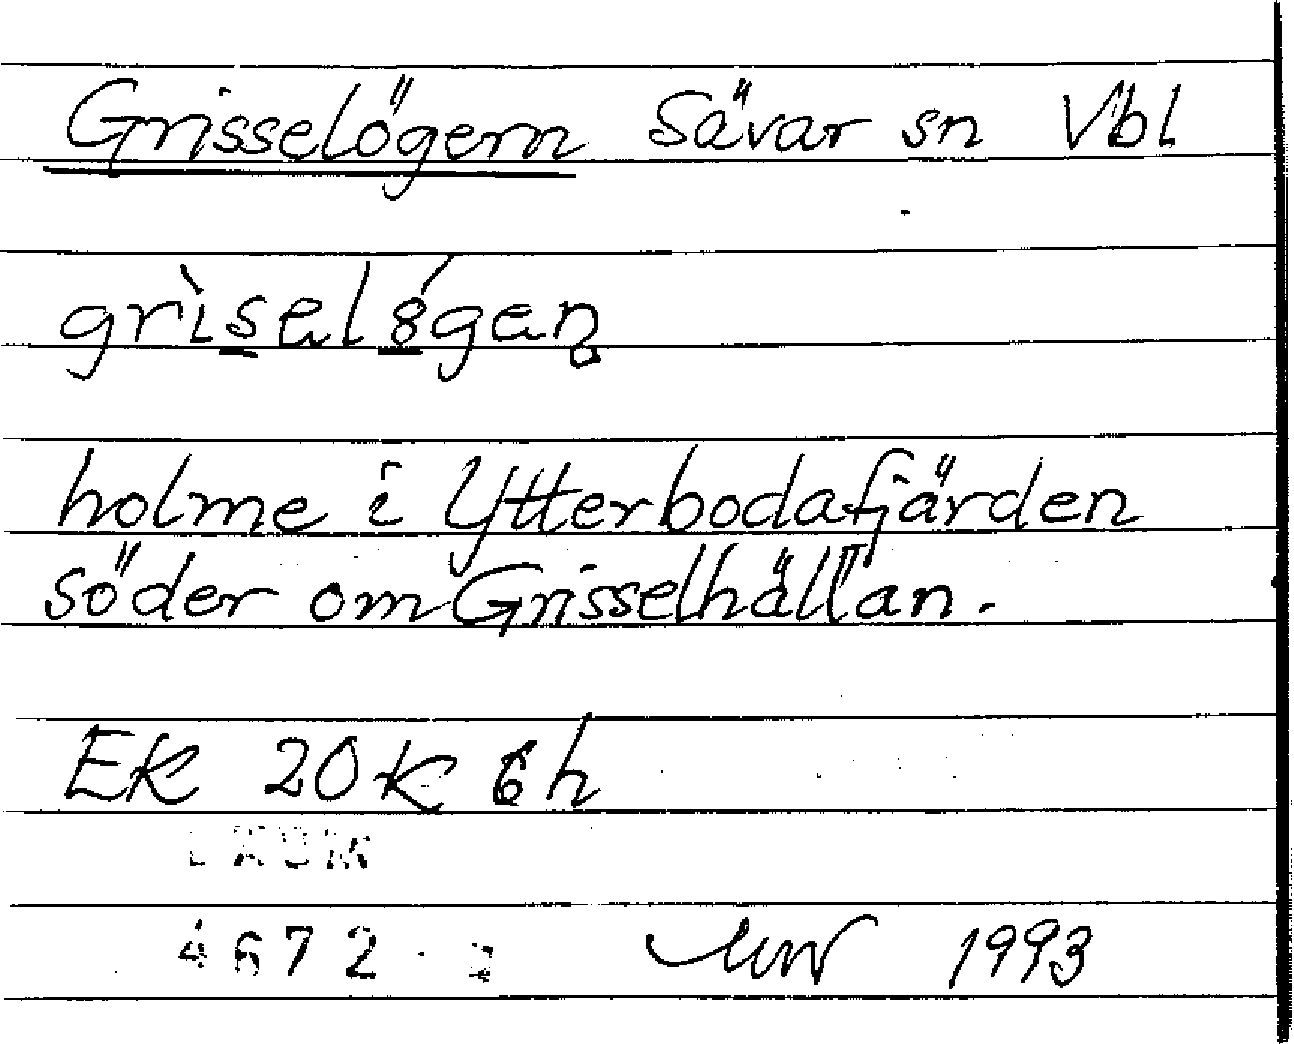 Grisselögern Sävar sn Vbl
grìselǿgen
holme i Ytterbodafjärden
söder om Grisselhällan.
EK 20K 6h
DAUM
4672
1993